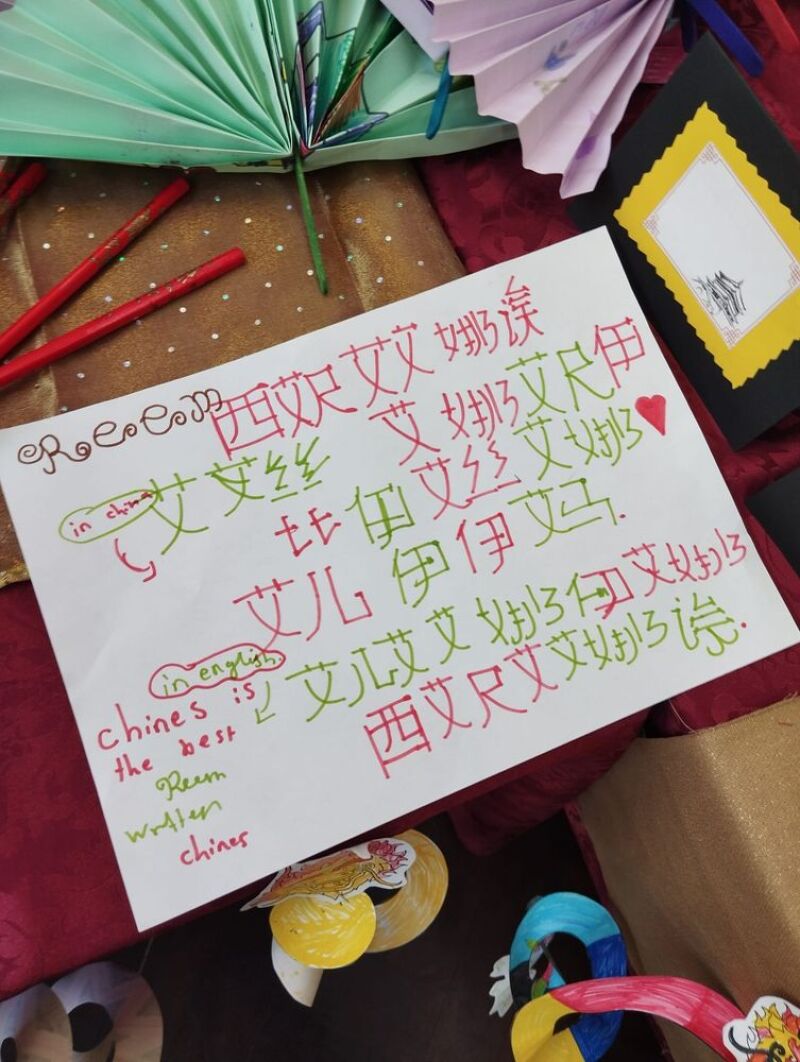 Reem 西艾尺艾艾娜诶
in china 艾艾丝 艾娜艾尺伊
比伊艾丝艾娜
艾儿伊伊艾马.
in english 艾儿艾艾娜伊艾娜
西艾尺艾艾娜诶.
chines is
the best
Reem
written
chines